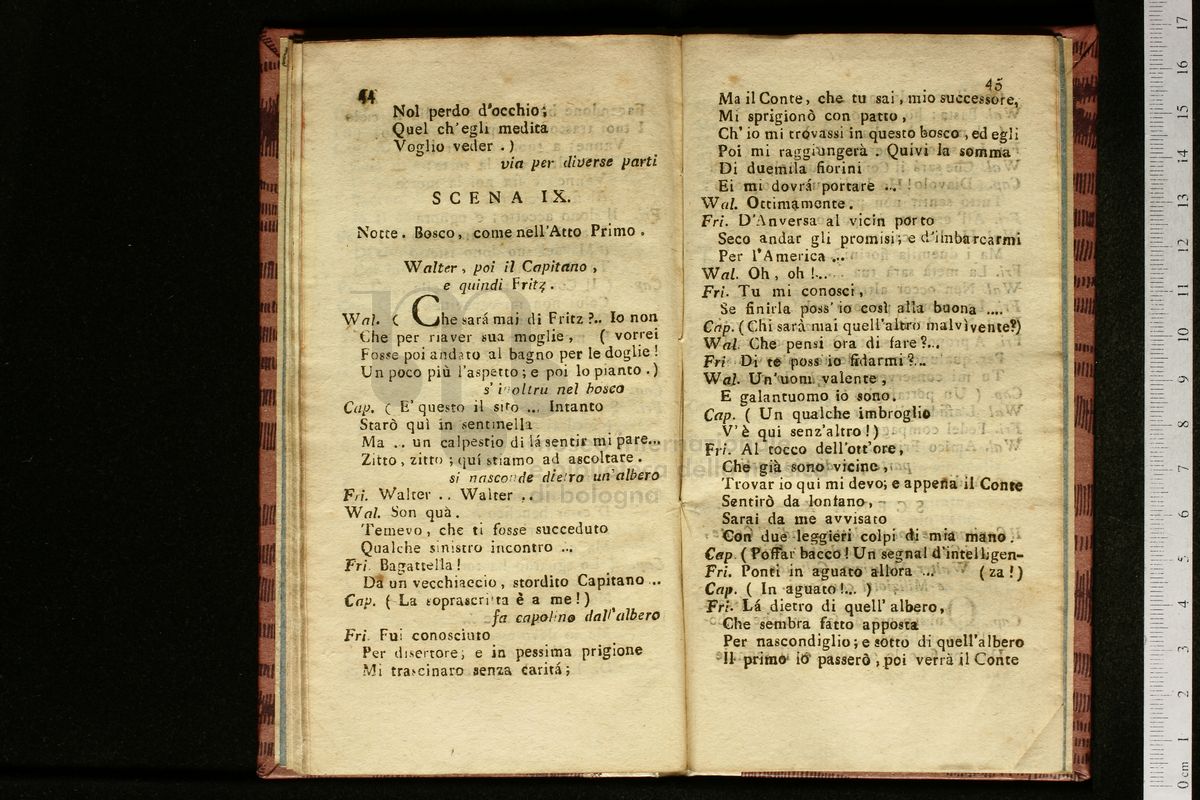 44
Nol perdo d'occhio;
Quel ch'egli medita
Voglio veder .)
via per diverse parti
SCENA IX.
Notte. Bosco, come nell'Atto Primo.
Walter, poi il Capitano,
e quindi Fritz.
Wal. ( Che sará mai di Fritz ?.. Io non
Che per riaver sua moglie, ( vorrei
Fosse poi andato al bagno per le doglie!
Un poco più l'aspetto; e poi lo pianto.)
s'inoltra nel bosco
Cap. ( E' questo il sito ... Intanto
Starò quì in sentinella
Ma .. un calpestio di lá sentir mi pare...
Zitto, zitto; quí stiamo ad ascoltare.
si nasconde dietro un'albero
Fri. Walter .. Walter ..
Wal. Son quà.
Temevo, che ti fosse succeduto
Qualche sinistro incontro ...
Fri. Bagattella!
Da un vecchiaccio, stordito Capitano ..
Cap. ( La soprascritta è a me!)
fa capolino dall'albero
Fri. Fui conosciuto
Per disertore; e in pessima prigione
Mi trascinaro senza caritá;
45
Ma il Conte, che tu sai, mio successore,
Mi sprigionò con patto,
Ch'io mi trovassi in questo bosco, ed egli
Poi mi raggiungerà. Quivi la somma
Di duemila fiorini
Ei mi dovrá portare ...
Wal. Ottimamente.
Fri. D'Anversa al vicin porto
Seco andar gli promisi; e d'imbarcarmi
Per l'America ...
Wal. Oh, oh !...
Fri. Tu mi conosci,
Se finirla poss'io così alla buona ....
Cap. ( Chi sará mai quell'altro malvivente?)
Wal. Che pensi ora di fare?...
Fri. Di te poss'io fidarmi?..
Wal. Un'uom valente,
E galantuomo io sono.
Cap. ( Un qualche imbroglio
V'è qui senz'altro!)
Fri. Al tocco dell'ott'ore,
Che già sono vicine,
Trovar io qui mi devo; e appena il Conte
Sentirò da lontano,
Sarai da me avvisato
Con due leggieri colpi di mia mano.
Cap. ( Poffar bacco! Un segnal d'intelligen-
Fri. Ponti in aguato allora ... (za!)
Cap. ( In aguato!... )
Fri. Lá dietro di quell'albero,
Che sembra fatto apposta
Per nascondiglio; e sotto di quell'albero
Il primo io passerò, poi verrà il Conte
internazionale
e biblioteca della musica
di bologna
0 cm 1 2 3 4 5 6 7 8 9 10 11 12 13 14 15 16 17